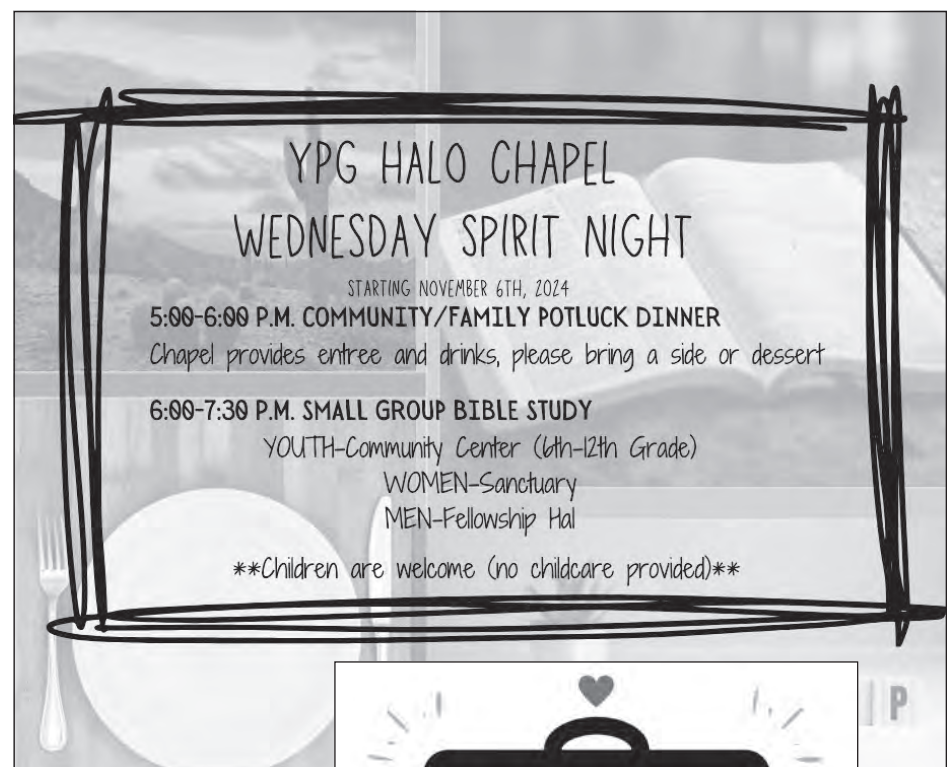 YPG HALO CHAPEL
WEDNESDAY SPIRIT NIGHT
STARTING NOVEMBER 6TH, 2024
5:00-6:00 P.M. COMMUNITY/FAMILY POTLUCK DINNER
Chapel provides entree and drinks, please bring a side or dessert
6:00-7:30 P.M. SMALL GROUP BIBLE STUDY
YOUTH-Community Center (6th-12th Grade)
WOMEN-Sanctuary
MEN-Fellowship Hal
**Children are welcome (no childcare provided)**
P